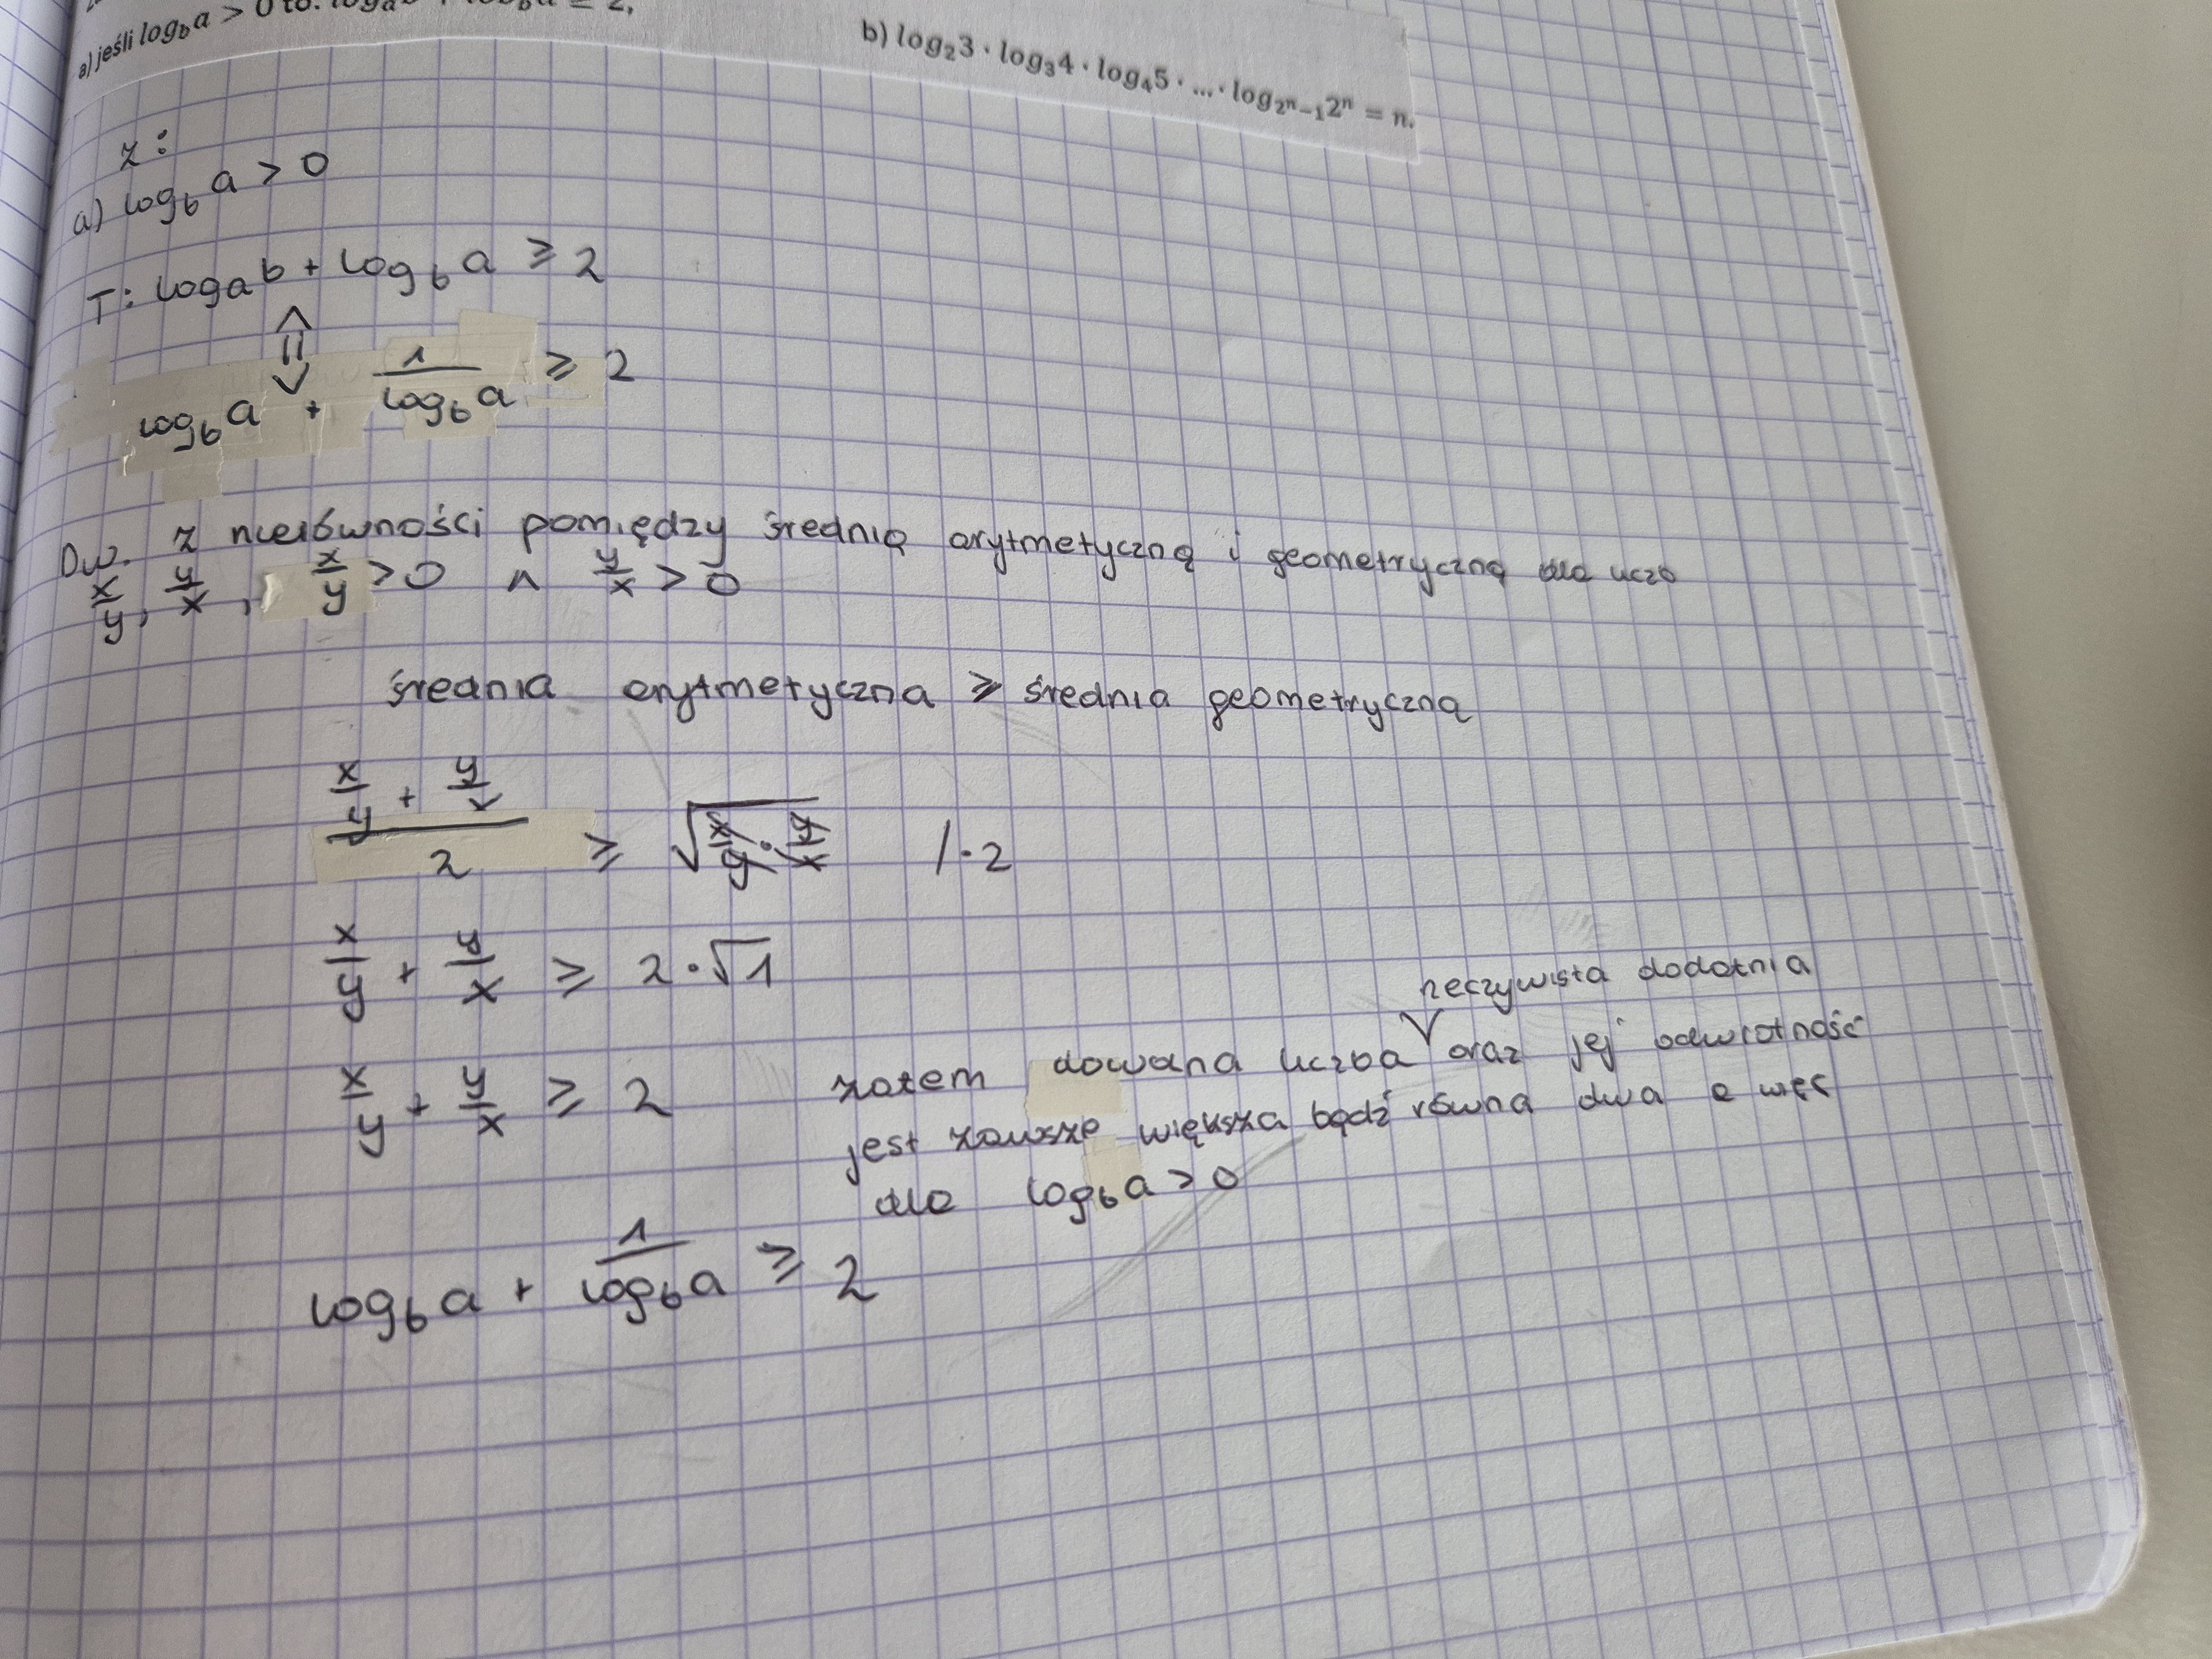 a) jeśli log_b a > 0 to: log_a b + log_b a ≥ 2,
b) log₂3 · log₃4 · log₄5 · ... · log_{2ⁿ−1} 2ⁿ = n.
z:
a) log_b a > 0
T: log_a b + log_b a ≥ 2
⇕
log_b a + 1/(log_b a) ≥ 2
Dw. z nierówności pomiędzy średnią arytmetyczną i geometryczną dla liczb
x/y, y/x, x/y > 0 ∧ y/x > 0
średnia arytmetyczna ≥ średnia geometryczną
(x/y + y/x)/2 ≥ √(x/y · y/x) / · 2
x/y + y/x ≥ 2 · √1
rzeczywista dodatnia
x/y + y/x ≥ 2 zatem dowolna liczba ∨ oraz jej odwrotność
jest zawsze większa bądź równa dwa a więc
dla log_b a > 0
log_b a + 1/(log_b a) ≥ 2